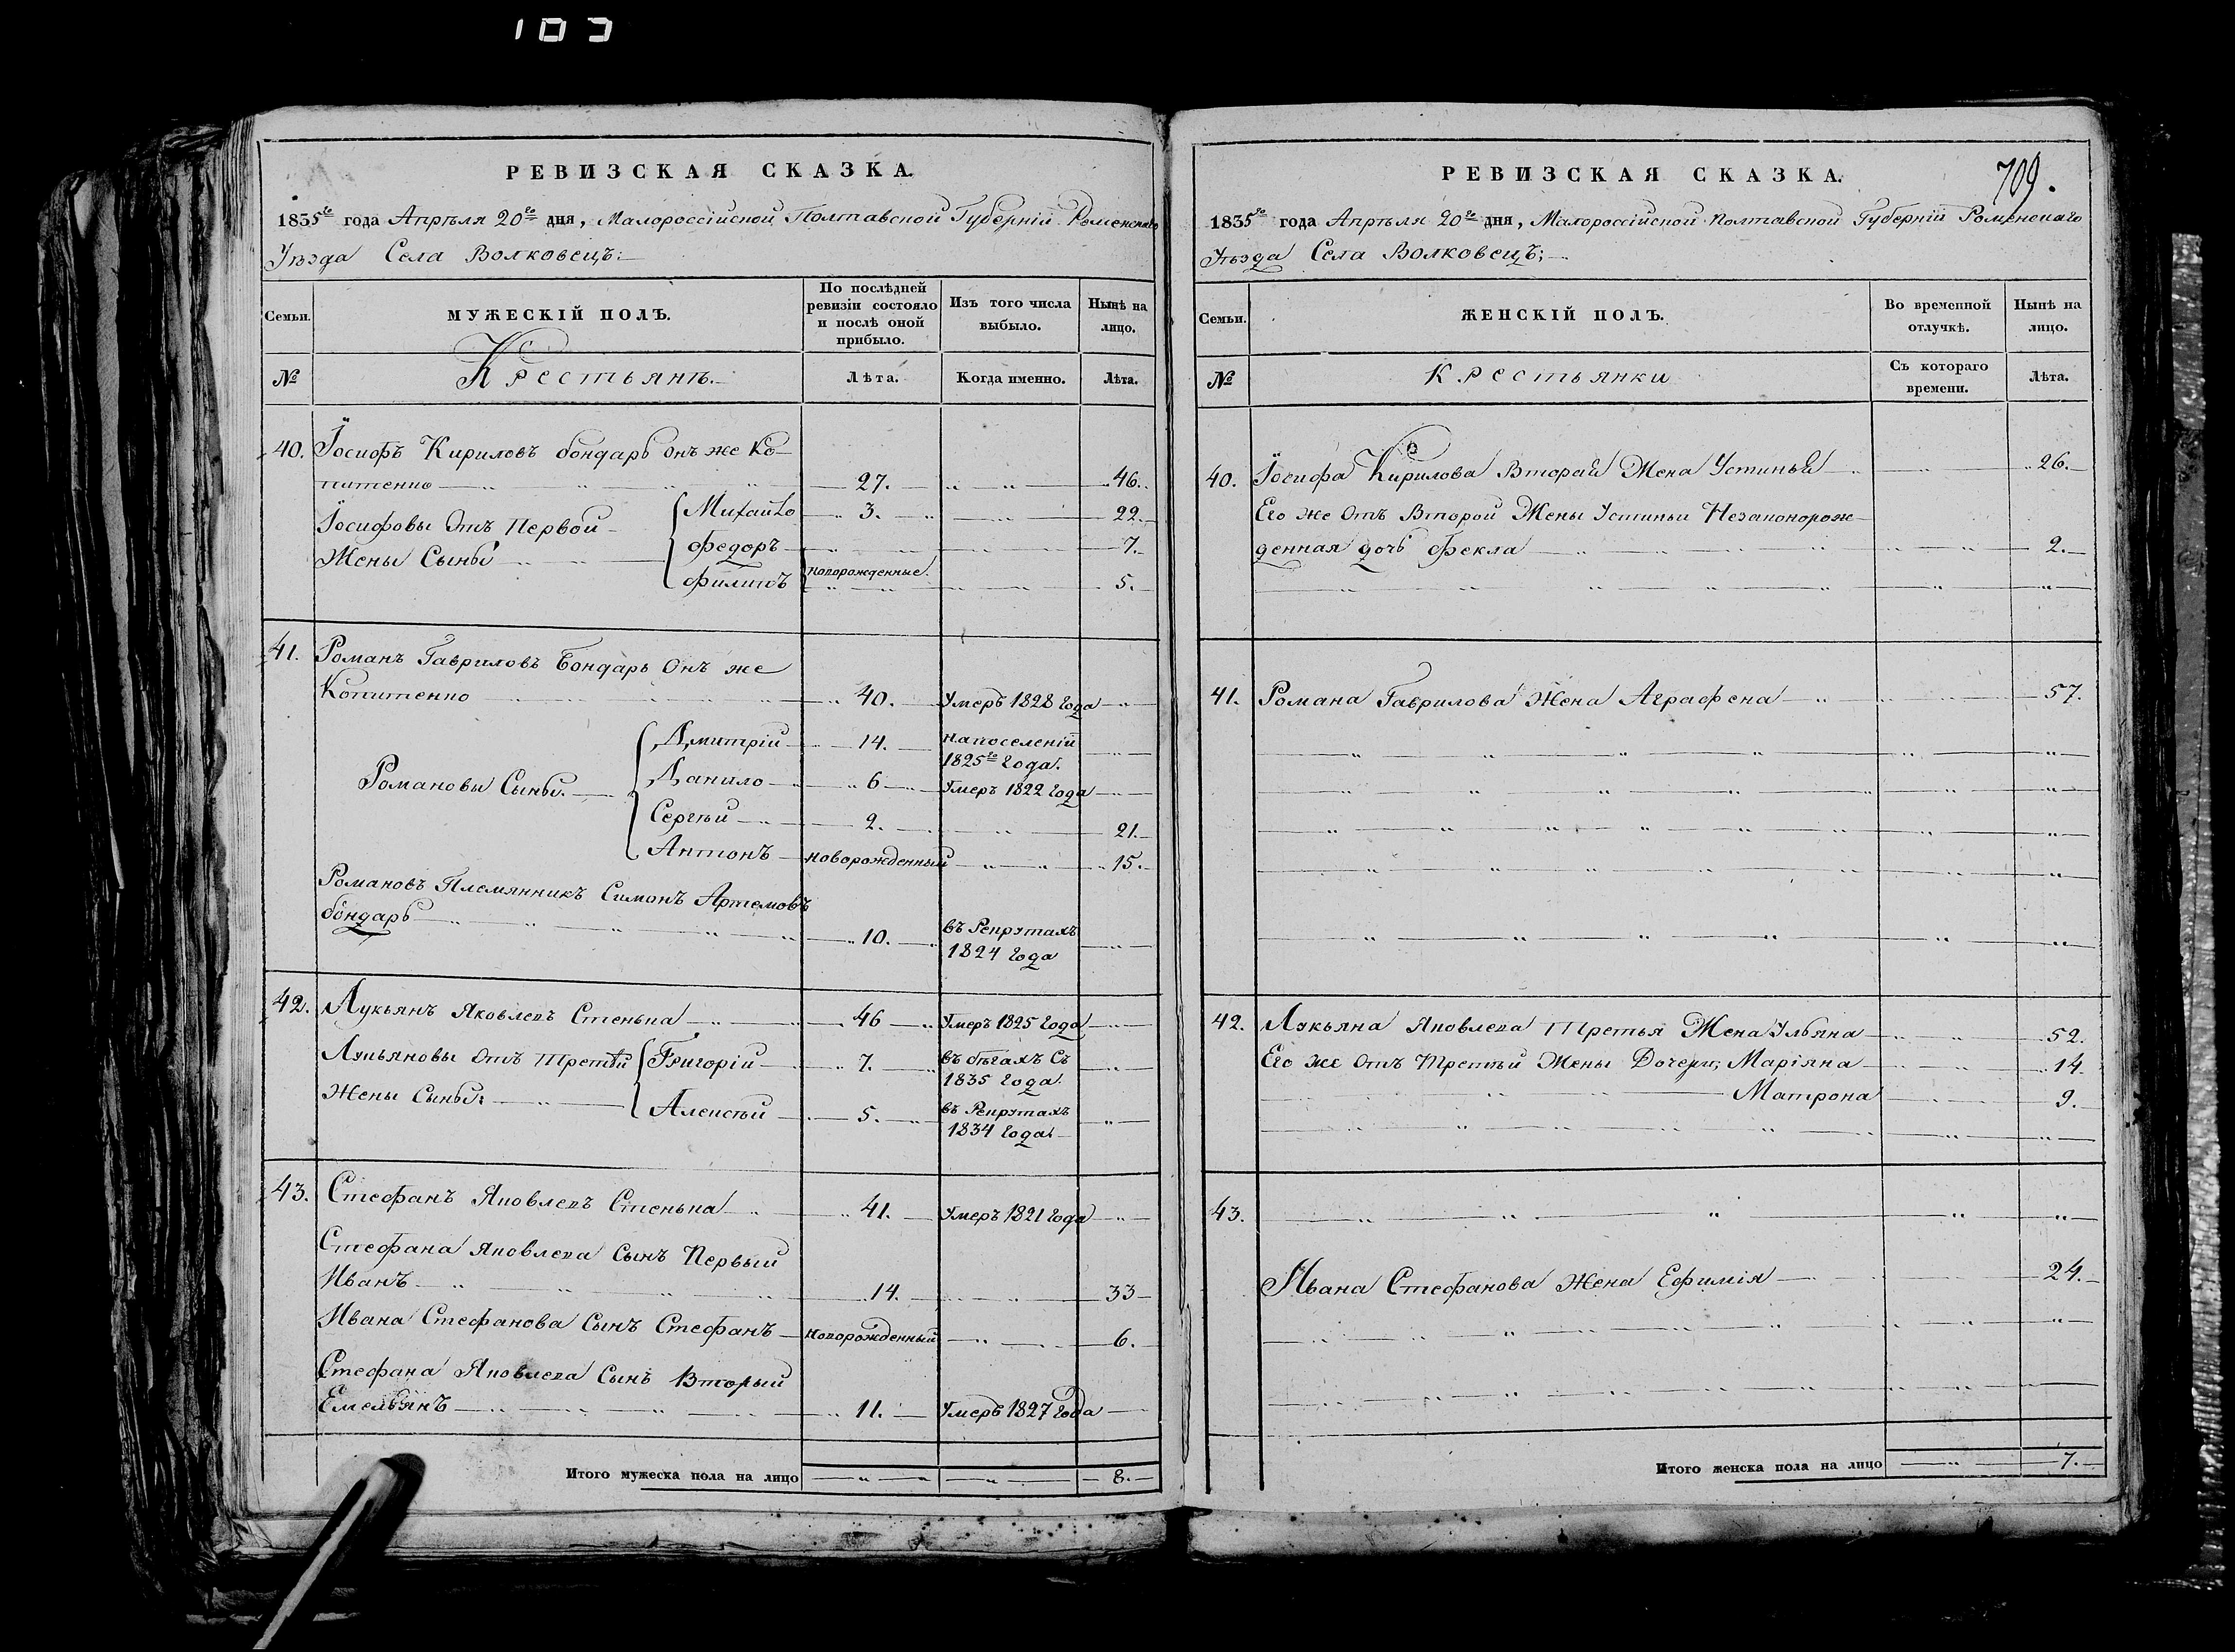 РЕВИЗСКАЯ СКАЗКА.
1835го года Апрѣля 20го дня, Малороссійской Полтавской Губерніи Роменскаго
Уѣзда Села Волковецъ:
Семьи.
МУЖЕСКІЙ ПОЛЪ.
По послѣдней
ревизіи состояло
и послѣ оной
прибыло.
Изъ того числа
выбыло.
Нынѣ на
лицо.
№
Крестьянъ.
Лѣта.
Когда именно.
Лѣта.
40. Іосифъ Кириловъ бондарь онъ же Ко-
питенко 27. 46.
Іосифовы Отъ Первой Михайло 3. 22.
Жены Сыны Федоръ 7.
Филипъ новорожденные. 5.
41. Романъ Гавриловъ Бондарь Онъ же
Копитенко 40. Умеръ 1828 года
Дмитрій 14. На поселеніи
1825го Года.
Романовы Сыны. Данило 6 Умеръ 1822 года
Сергѣй 2. 21.
Антонъ новорожденный 15.
Романовъ Племянникъ Симонъ Артемовъ
бондарь 10. въ Рекрутахъ
1824 года
42. Лукьянъ Яковлевъ Стенька 46 Умеръ 1825 года
Лукьяновы отъ Третьи Григорій 7. въ бѣгахъ Съ
1835 Года.
Жены Сыны: Алексѣй 5. въ Рекрутахъ
1834 года.
43. Стефанъ Яковлевъ Стенька 41. Умеръ 1821 года
Стефана Яковлева Сынъ Первый
Иванъ 14. 33
Ивана Стефанова Сынъ Стефанъ новорожденный 6.
Стефана Яковлева Сынъ Вторый
Емельянъ 11. Умеръ 1827 Года
Итого мужеска пола на лицо 8.
РЕВИЗСКАЯ СКАЗКА.
709.
1835го года Апрѣля 20го дня, Малороссійской Полтавской Губерніи Роменскаго
Уѣзда Села Волковецъ;
Семьи.
ЖЕНСКІЙ ПОЛЪ.
Во временной
отлучкѣ.
Нынѣ на
лицо.
№
Крестьянки
Съ котораго
времени.
Лѣта.
40. Іосифа Кирилова Вторая Жена Устинья 26.
Его же Отъ Второй Жены Устиньи Незаконорож-
денная дочь Фекла 2.
41. Романа Гаврилова Жена Аграфена 57.
42. Лукьяна Яковлева Третья Жена Ульяна 52.
Его же отъ Третьи Жены Дочери; Маріяна 14.
Матрона 9.
43.
Ивана Стефанова Жена Ефимія 24.
Итого женска пола на лицо 7.